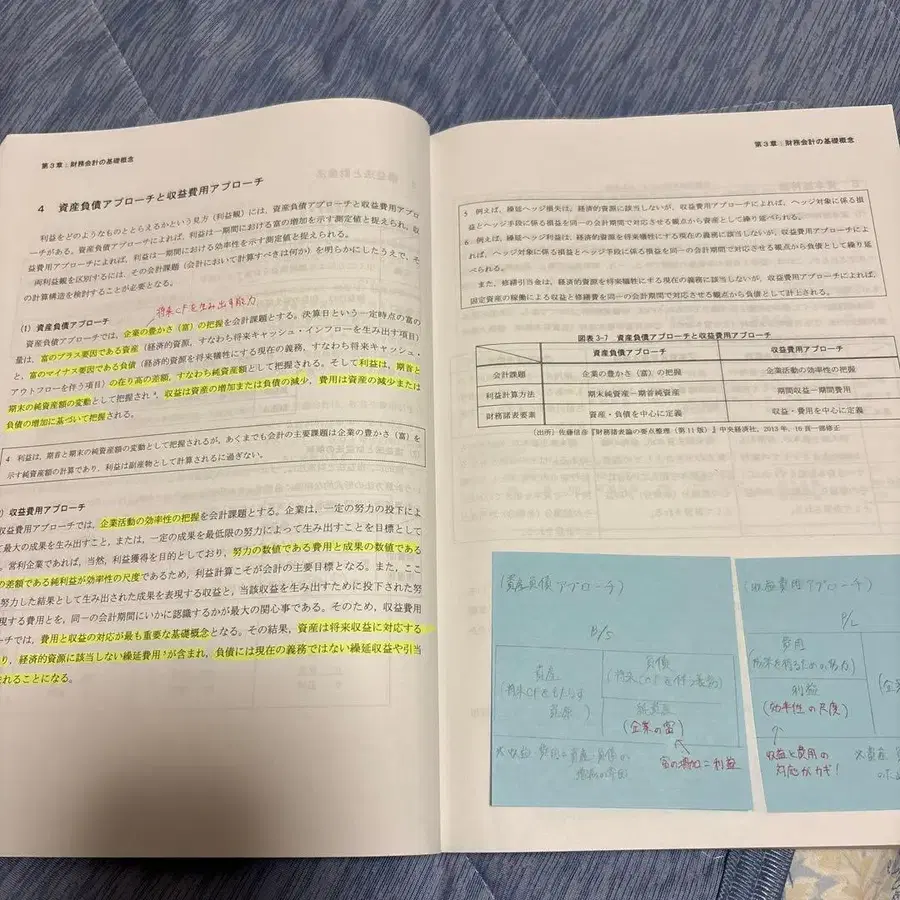 第3章:財務会計の基礎概念
4 資産負債アプローチと収益費用アプローチ
利益をどのようなものととらえるかという見方(利益観)には,資産負債アプローチと収益費用アプロ
ーチがある。資産負債アプローチによれば,利益は一期間における富の増加を示す測定値と捉えられ,収
益費用アプローチによれば,利益は一期間における効率性を示す測定値と捉えられる。
両利益観を区別するには,その会計課題(会計において計算すべきは何か)を明らかにしたうえで,そ
の計算構造を検討することが必要となる。
将来CFを生み出す能力
(1) 資産負債アプローチ
資産負債アプローチでは,企業の豊かさ(富)の把握を会計課題とする。決算日という一定時点の富の
量は,富のプラス要因である資産(経済的資源,すなわち将来キャッシュ・インフローを生み出す項目)
と,富のマイナス要因である負債(経済的資源を将来犠牲にする現在の義務,すなわち将来キャッシュ・
アウトフローを伴う項目)の在り高の差額,すなわち純資産額として把握される。そして利益は,期首と
期末の純資産額の変動として把握され4,収益は資産の増加または負債の減少,費用は資産の減少または
負債の増加に基づいて把握される。
4 利益は,期首と期末の純資産額の変動として把握されるが,あくまでも会計の主要課題は企業の豊かさ(富)を
示す純資産額の計算であり,利益は副産物として計算されるに過ぎない。
) 収益費用アプローチ
収益費用アプローチでは,企業活動の効率性の把握を会計課題とする。企業は,一定の努力の投下によ
って最大の成果を生み出すこと,または,一定の成果を最低限の努力によって生み出すことを目標として
。営利企業であれば,当然,利益獲得を目的としており,努力の数値である費用と成果の数値である
の差額である純利益が効率性の尺度であるため,利益計算こそが会計の主要目標となる。また,ここ
努力した結果として生み出された成果を表現する収益と,当該収益を生み出すために投下された努
現する費用とを,同一の会計期間にいかに認識するかが最大の関心事である。そのため,収益費用
ーチでは,費用と収益の対応が最も重要な基礎概念となる。その結果,資産は将来収益に対応する
り,経済的資源に該当しない繰延費用5が含まれ,負債には現在の義務ではない繰延収益や引当
れることになる。
第3章:財務会計の基礎概念
5 例えば,繰延ヘッジ損失は,経済的資源に該当しないが,収益費用アプローチによれば,ヘッジ対象に係る損
益とヘッジ手段に係る損益を同一の会計期間で対応させる観点から資産として繰り延べられる。
6 例えば,繰延ヘッジ利益は,経済的資源を将来犠牲にする現在の義務に該当しないが,収益費用アプローチによ
れば,ヘッジ対象に係る損益とヘッジ手段に係る損益を同一の会計期間で対応させる観点から負債として繰り延
べられる。
また,修繕引当金は,経済的資源を将来犠牲にする現在の義務に該当しないが,収益費用アプローチによれば,
固定資産の稼働による収益と修繕費を同一の会計期間で対応させる観点から負債として計上される。
図表3-7 資産負債アプローチと収益費用アプローチ
資産負債アプローチ 収益費用アプローチ
会計課題 企業の豊かさ(富)の把握 企業活動の効率性の把握
利益計算方法 期末純資産-期首純資産 期間収益-期間費用
財務諸表要素 資産・負債を中心に定義 収益・費用を中心に定義
(出所)佐藤信彦『財務諸表論の要点整理(第11版)』中央経済社,2013年,16頁一部修正
(資産負債アプローチ)
B/S
資産
(将来CFをもたらす
資源)
負債
(将来CFを伴う義務)
純資産
(企業の富)
富の増加=利益
※収益・費用は資産・負債の
(収益費用アプローチ)
P/L
費用
(成果を得るための努力)
利益
(効率性の尺度)
収益と費用の
対応がカギ!
※資産